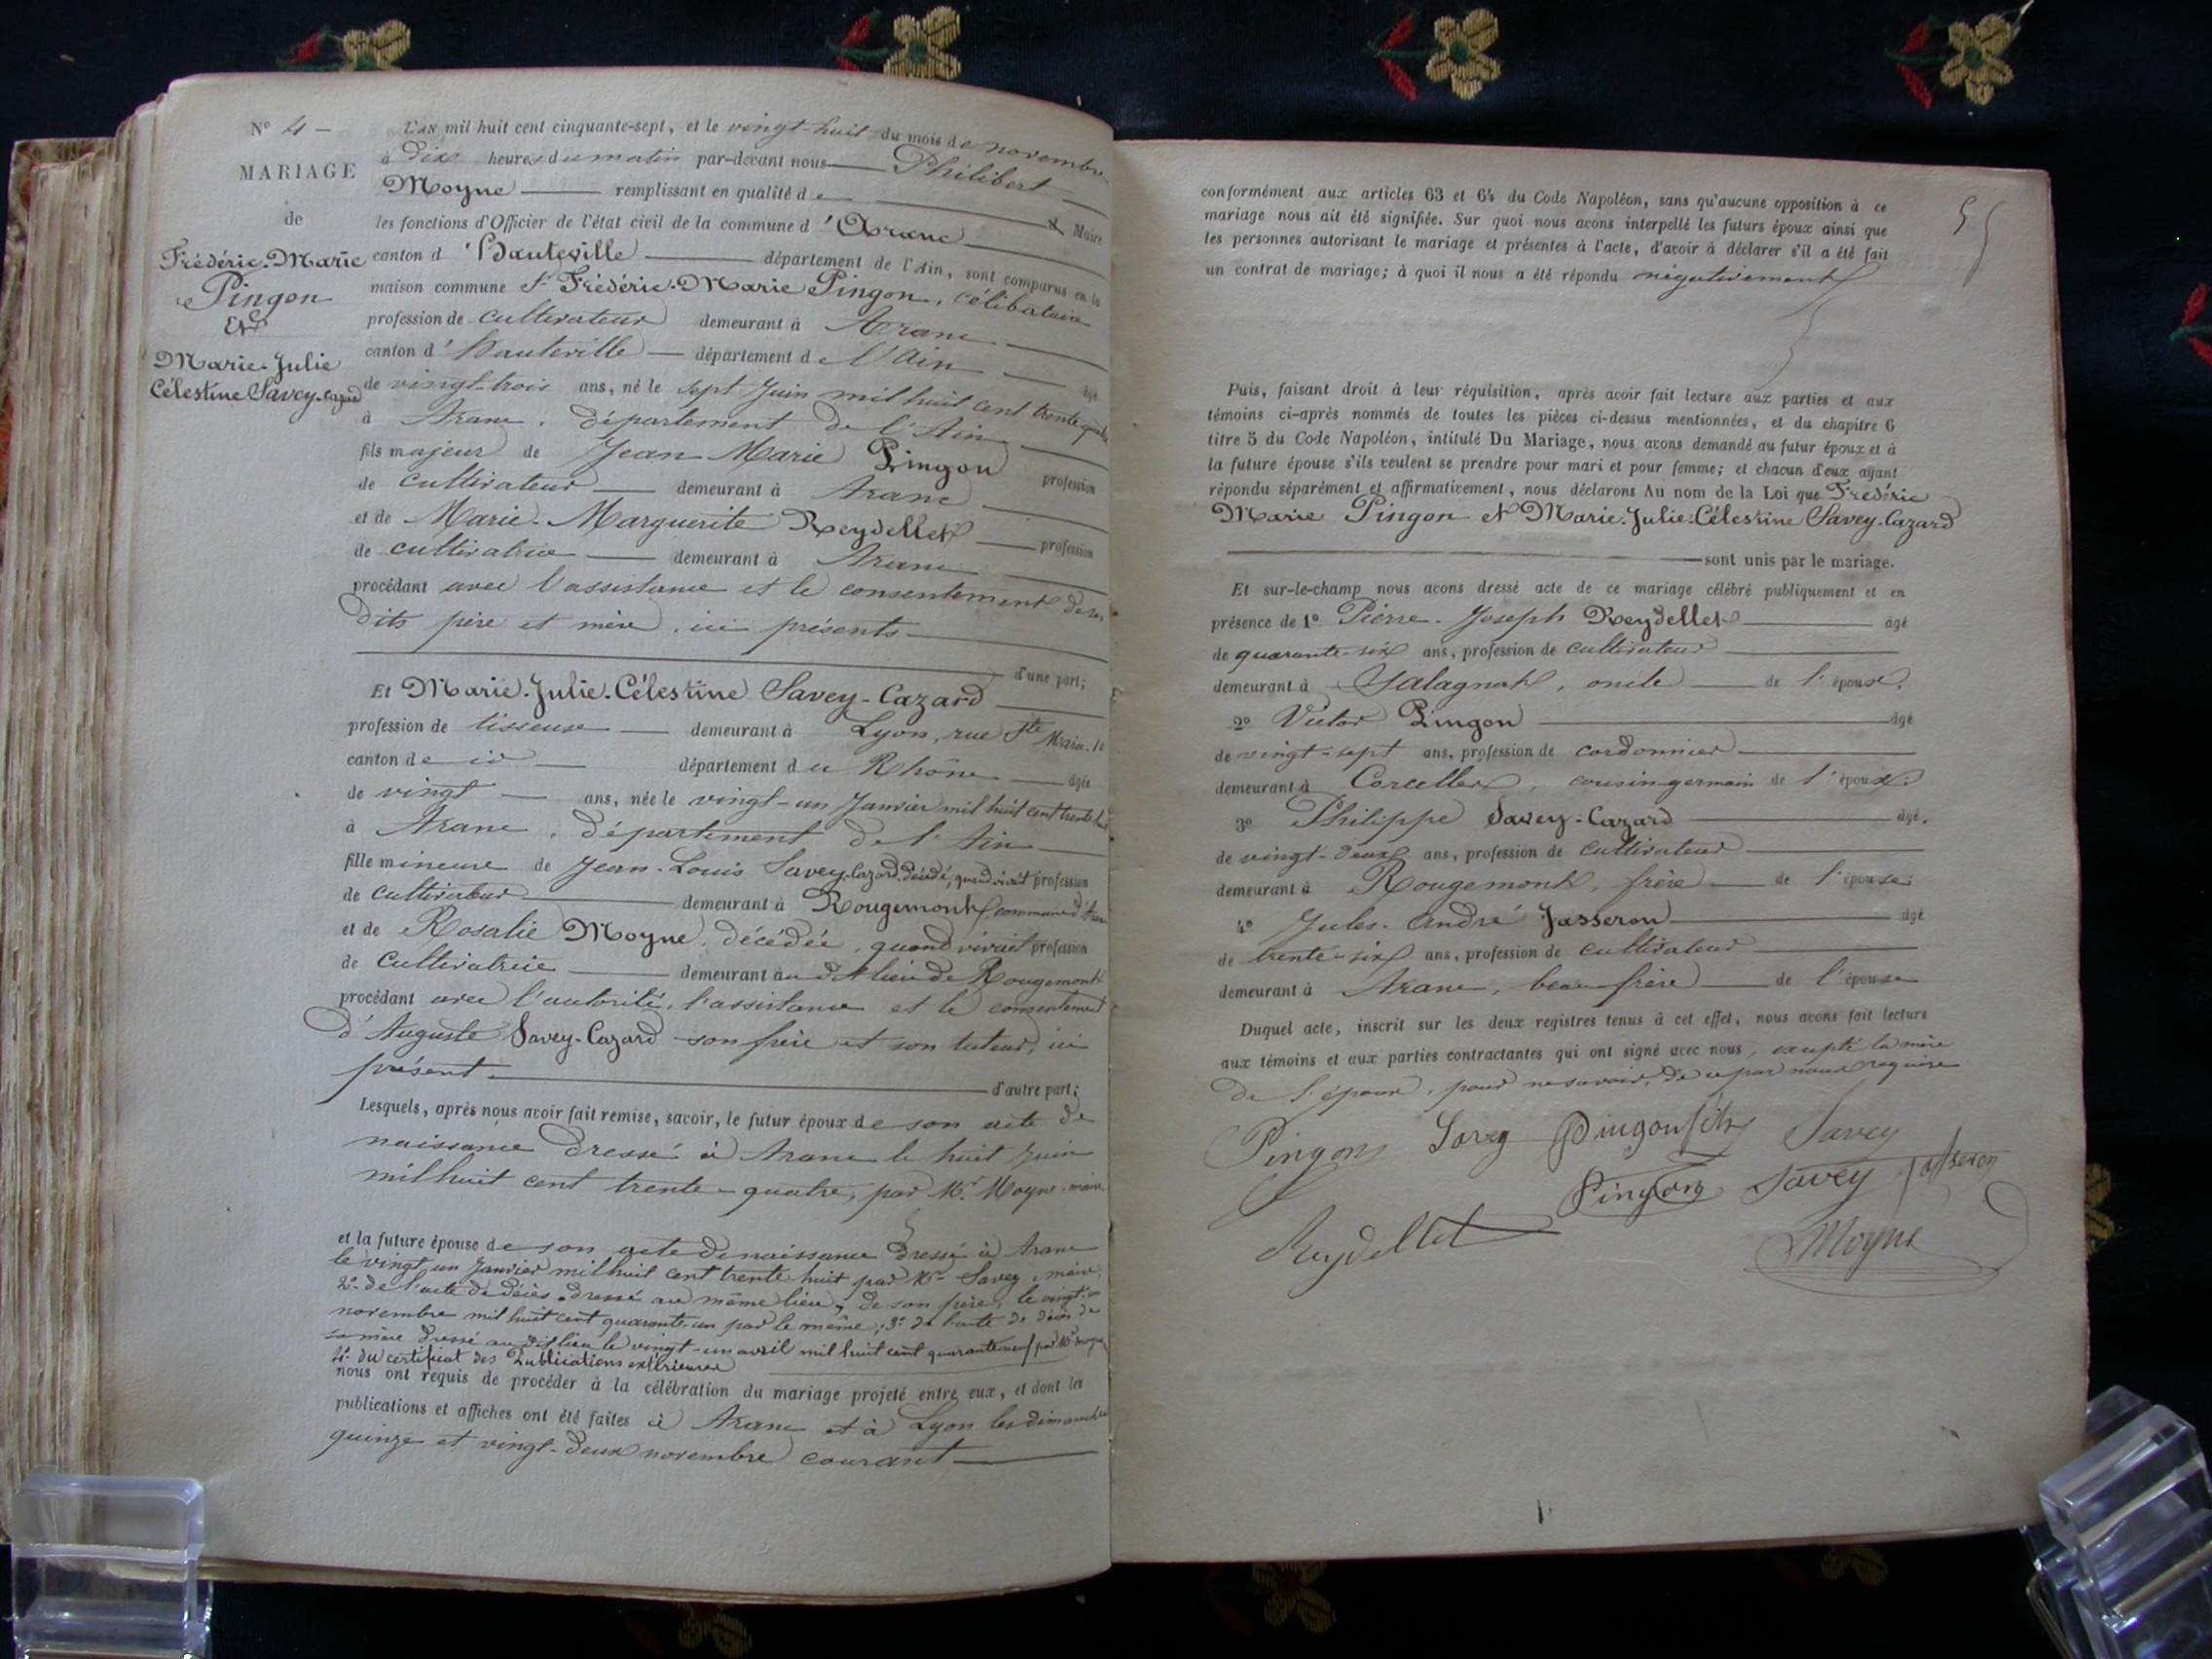 N° 4 —
MARIAGE
de
Frédéric-Marie
Pingon
Et
Marie-Julie
Célestine Savey-Cazard
L'AN mil huit cent cinquante-sept, et le vingt-huit du mois de novembre
à dix heures du matin par-devant nous Philibert
Moyne remplissant en qualité de Maire
les fonctions d'Officier de l'état civil de la commune d'Aranc
canton d'Hauteville département de l'Ain, sont comparus en la
maison commune Sr Frédéric-Marie Pingon, célibataire
profession de cultivateur demeurant à Aranc
canton d'Hauteville département de l'Ain âgé
de vingt-trois ans, né le sept Juin mil huit cent trente quatre
à Aranc, département de l'Ain
fils majeur de Jean-Marie Pingon profession
de cultivateur demeurant à Aranc
et de Marie-Marguerite Reydellet profession
de cultivatrice demeurant à Aranc
procédant avec l'assistance et le consentement de ses
dits père et mère, ici présents
d'une part;
Et Marie-Julie-Célestine Savey-Cazard
profession de lisseuse demeurant à Lyon, rue Ste
canton de id département du Rhône âgée
de vingt ans, née le vingt-un Janvier mil huit cent trente huit
à Aranc, département de l'Ain
fille mineure de Jean-Louis Savey-Cazard décédé, quand vivait profession
de cultivateur demeurant à Rougemont commune d'Aranc
et de Rosalie Moyne, décédée, quand vivait profession
de cultivatrice demeurant au dit lieu de Rougemont
procédant avec l'autorité, l'assistance et le consentement
d'Auguste Savey-Cazard son frère et son tuteur, ici
présent d'autre part;
Lesquels, après nous avoir fait remise, savoir, le futur époux de son acte de
naissance dressé à Aranc le huit Juin
mil huit cent trente-quatre, par Mr Moyne, maire
et la future épouse de son acte de naissance dressé à Aranc
le vingt un Janvier mil huit cent trente huit par Mr Savey, maire,
2° de l'acte de décès dressé au même lieu, de son père, le
novembre mil huit cent quarante un par le même; 3° de l'acte de décès de
sa mère dressé au dit lieu le vingt-un avril mil huit cent quarante neuf par Mr Moyne
4° du certificat des Publications extérieures
nous ont requis de procéder à la célébration du mariage projeté entre eux, et dont les
publications et affiches ont été faites à Aranc et à Lyon les dimanches
quinze et vingt-deux novembre courant
conformément aux articles 63 et 64 du Code Napoléon, sans qu'aucune opposition à ce
mariage nous ait été signifiée. Sur quoi nous avons interpellé les futurs époux ainsi que
les personnes autorisant le mariage et présentes à l'acte, d'avoir à déclarer s'il a été fait
un contrat de mariage; à quoi il nous a été répondu négativement
Puis, faisant droit à leur réquisition, après avoir fait lecture aux parties et aux
témoins ci-après nommés de toutes les pièces ci-dessus mentionnées, et du chapitre 6
titre 5 du Code Napoléon, intitulé Du Mariage, nous avons demandé au futur époux et à
la future épouse s'ils veulent se prendre pour mari et pour femme; et chacun d'eux ayant
répondu séparément et affirmativement, nous déclarons Au nom de la Loi que Frédéric
Marie Pingon et Marie-Julie-Célestine Savey-Cazard
sont unis par le mariage.
Et sur-le-champ nous avons dressé acte de ce mariage célébré publiquement et en
présence de 1° Pierre-Joseph Reydellet âgé
de quarante-six ans, profession de cultivateur
demeurant à Jalagnat, oncle de l'époux.
2° Victor Pingon âgé
de vingt-sept ans, profession de cordonnier
demeurant à Corcelles, cousin germain de l'époux.
3° Philippe Savey-Cazard âgé.
de vingt-deux ans, profession de cultivateur
demeurant à Rougemont, frère de l'épouse
4° Jules-André Jasseron âgé
de trente-six ans, profession de cultivateur
demeurant à Aranc, beau-frère de l'épouse
Duquel acte, inscrit sur les deux registres tenus à cet effet, nous avons fait lecture
aux témoins et aux parties contractantes qui ont signé avec nous, excepté la mère
de l'époux, pour ne savoir, de ce par nous requise
Pingon Savey Pingon fils Savey
Pingon Savey Jasseron
Reydellet Moyne